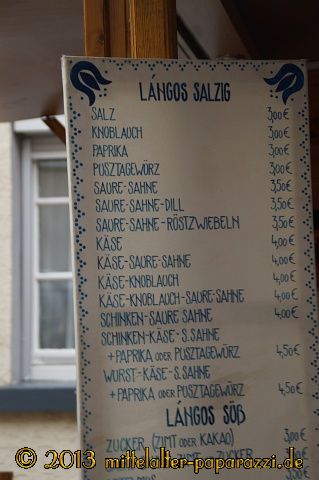 LÁNGOS SALZIG
SALZ 3,00 €
KNOBLAUCH 3,00 €
PAPRIKA 3,00 €
PUSZTAGEWÜRZ 3,00 €
SAURE-SAHNE 3,50 €
SAURE-SAHNE-DILL 3,50 €
SAURE-SAHNE-RÖSTZWIEBELN 3,50 €
KÄSE 4,00 €
KÄSE-SAURE-SAHNE 4,00 €
KÄSE-KNOBLAUCH 4,00 €
KÄSE-KNOBLAUCH-SAURE-SAHNE 4,00 €
SCHINKEN-SAURE SAHNE 4,00 €
SCHINKEN-KÄSE-S.SAHNE
+PAPRIKA ODER PUSZTAGEWÜRZ 4,50 €
WURST-KÄSE-S.SAHNE
+PAPRIKA ODER PUSZTAGEWÜRZ 4,50 €
LÁNGOS SÜß
ZUCKER (ZIMT ODER KAKAO) 3,00 €
ZUCKER
© 2013 mittelalter-paparazzi.de